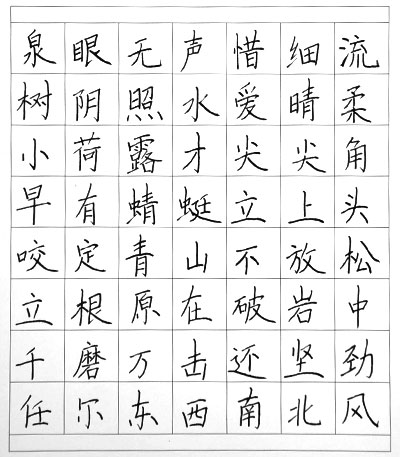 泉眼无声惜细流
树阴照水爱晴柔
小荷露才尖尖角
早有蜻蜓立上头
咬定青山不放松
立根原在破岩中
千磨万击还坚劲
任尔东西南北风